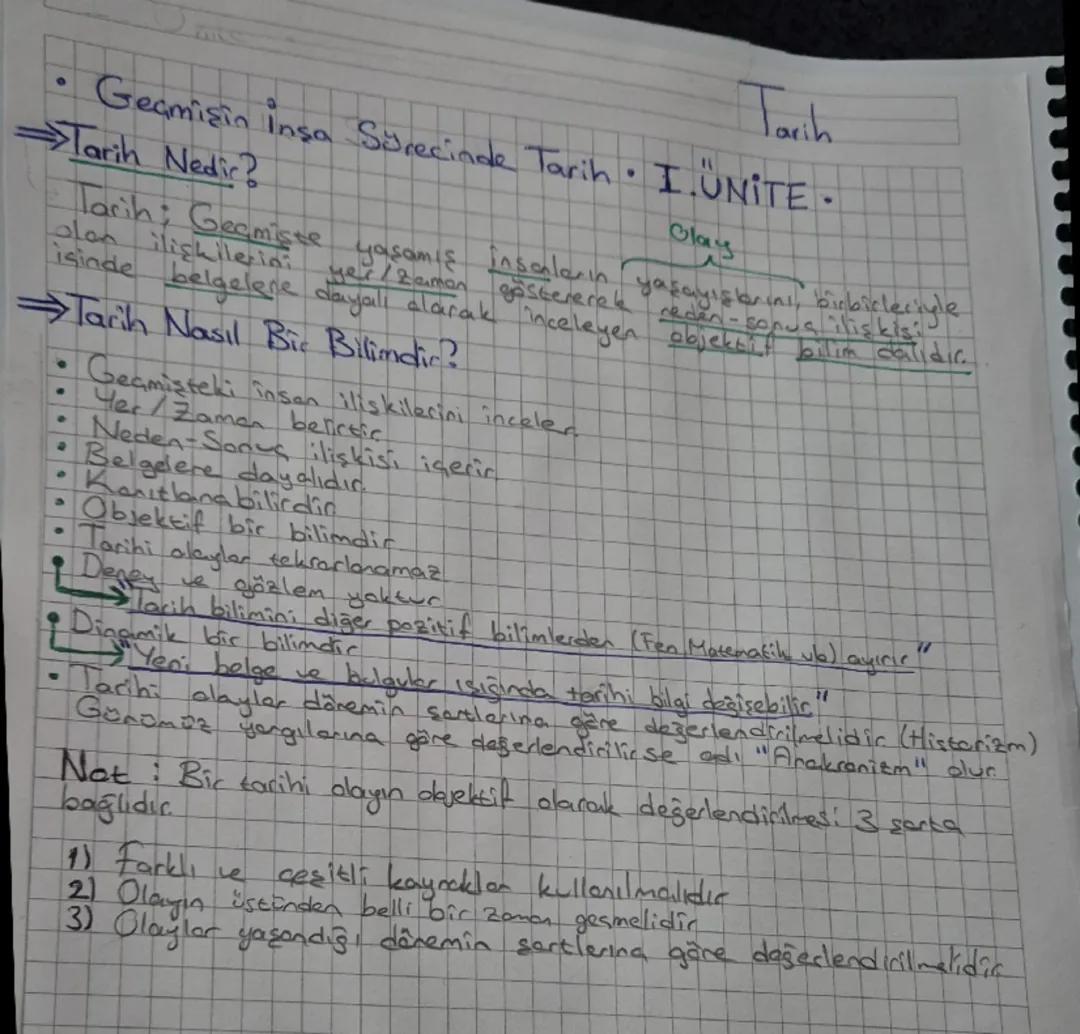 Tarih
• Geçmişin İnşa Sürecinde Tarih • I.ÜNİTE •
⇒Tarih Nedir?
Olay
Tarih; Geçmişte yaşamış insanların yaşayışlarını, birbirleriyle
olan ilişkilerini yer/zaman göstererek neden-sonuç ilişkisi
içinde belgelere dayalı olarak inceleyen objektif bilim dalıdır.
⇒Tarih Nasıl Bir Bilimdir?
• Geçmişteki insan ilişkilerini inceler
• Yer/Zaman belirtir
• Neden-Sonuç ilişkisi içerir
• Belgelere dayalıdır.
• Kanıtlanabilirdir
• Objektif bir bilimdir
• Tarihi olaylar tekrarlanamaz
• Deney ve gözlem yoktur
→Tarih bilimini diğer pozitif bilimlerden (Fen, Matematik vb) ayırır"
• Dinamik bir bilimdir
→"Yeni belge ve bulgular ışığında tarihi bilgi değişebilir"
• Tarihi olaylar dönemin şartlarına göre değerlendirilmelidir (Historizm)
Günümüz yargılarına göre değerlendirilirse adı "Anakronizm" olur
Not : Bir tarihi olayın objektif olarak değerlendirilmesi 3 şarta
bağlıdır.
1) Farklı ve çeşitli kaynaklar kullanılmalıdır
2) Olayın üstünden belli bir zaman geçmelidir
3) Olaylar yaşandığı dönemin şartlarına göre değerlendirilmelidir